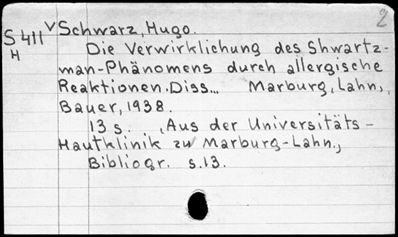 2
S411 v Schwarz, Hugo.
H Die Verwirklichung des Shwartz-
man-Phänomens durch allergische
Reaktionen. Diss... Marburg, Lahn,
Bauer, 1938.
13 s. (Aus der Universitäts-
Hautklinik zu Marburg-Lahn.,
Bibliogr. s.13.